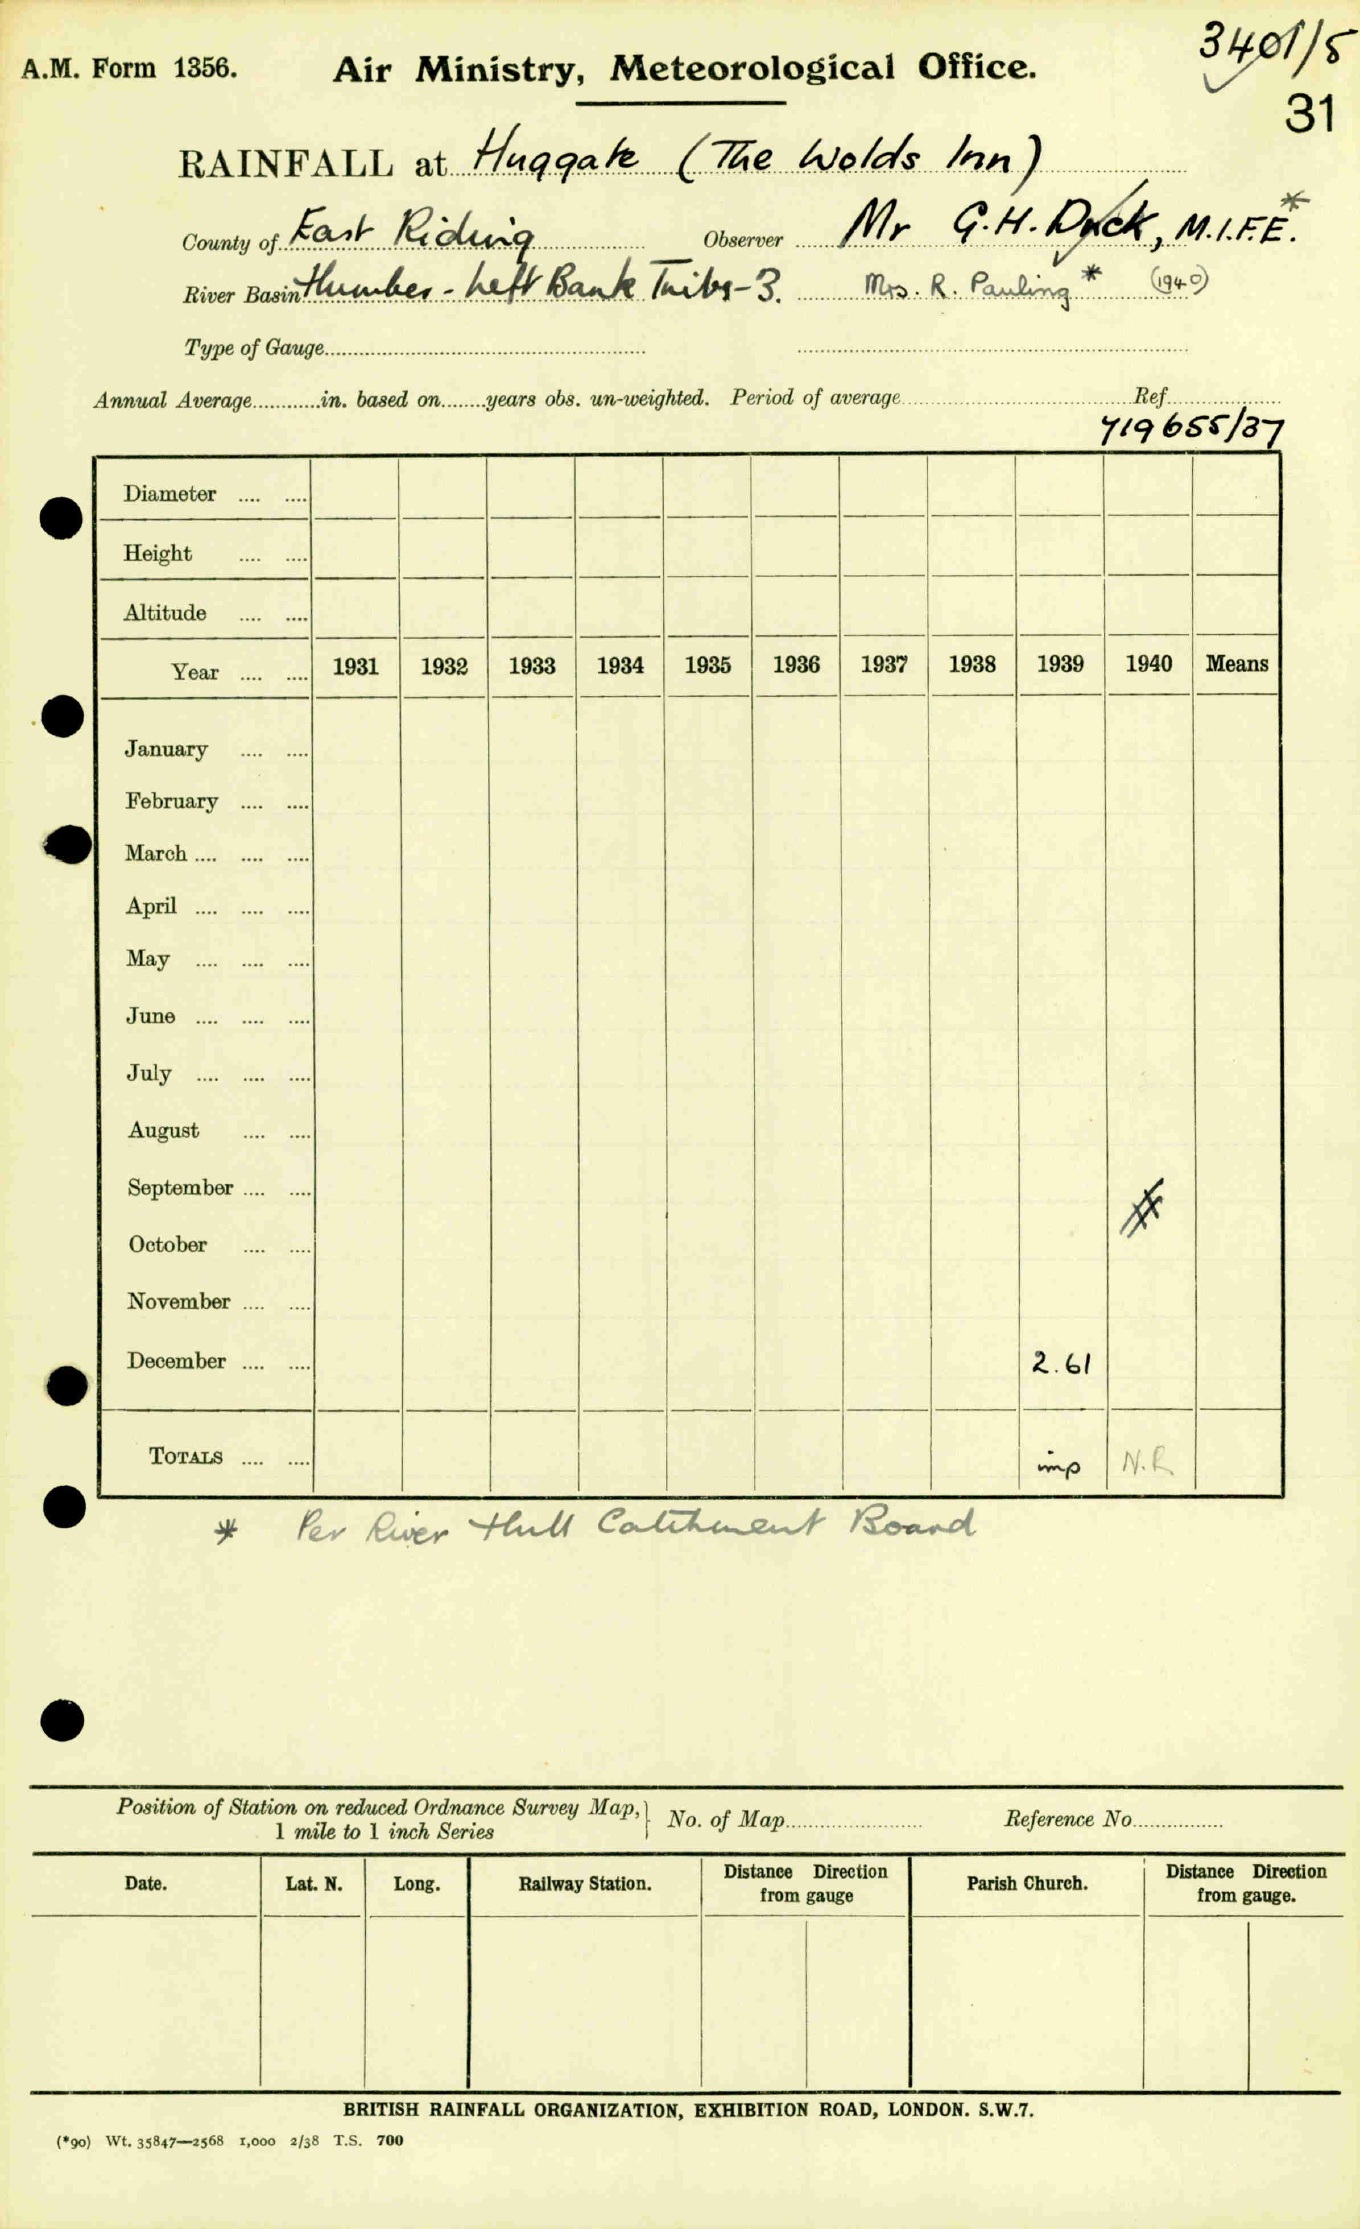 3401/5
A.M. Form 1356. Air Ministry, Meteorological Office.
31
RAINFALL at Huggate (The Wolds Inn)
County of East Riding Observer Mr G.H. Duck, M.I.F.E.*
River Basin Humber - Left Bank Tribs - 3. Mrs. R. Pauling * (1940)
Type of Gauge
Annual Average in. based on years obs. un-weighted. Period of average Ref
719655/37
Diameter
Height
Altitude
Year 1931 1932 1933 1934 1935 1936 1937 1938 1939 1940 Means
January
February
March
April
May
June
July
August
September
October
November
December 2.61
TOTALS imp N.R
* Per River Hull Catchment Board
Position of Station on reduced Ordnance Survey Map, No. of Map Reference No
1 mile to 1 inch Series
Date. Lat. N. Long. Railway Station. Distance Direction from gauge Parish Church. Distance Direction from gauge.
BRITISH RAINFALL ORGANIZATION, EXHIBITION ROAD, LONDON. S.W.7.
(*90) Wt. 35847—2568 1,000 2/38 T.S. 700